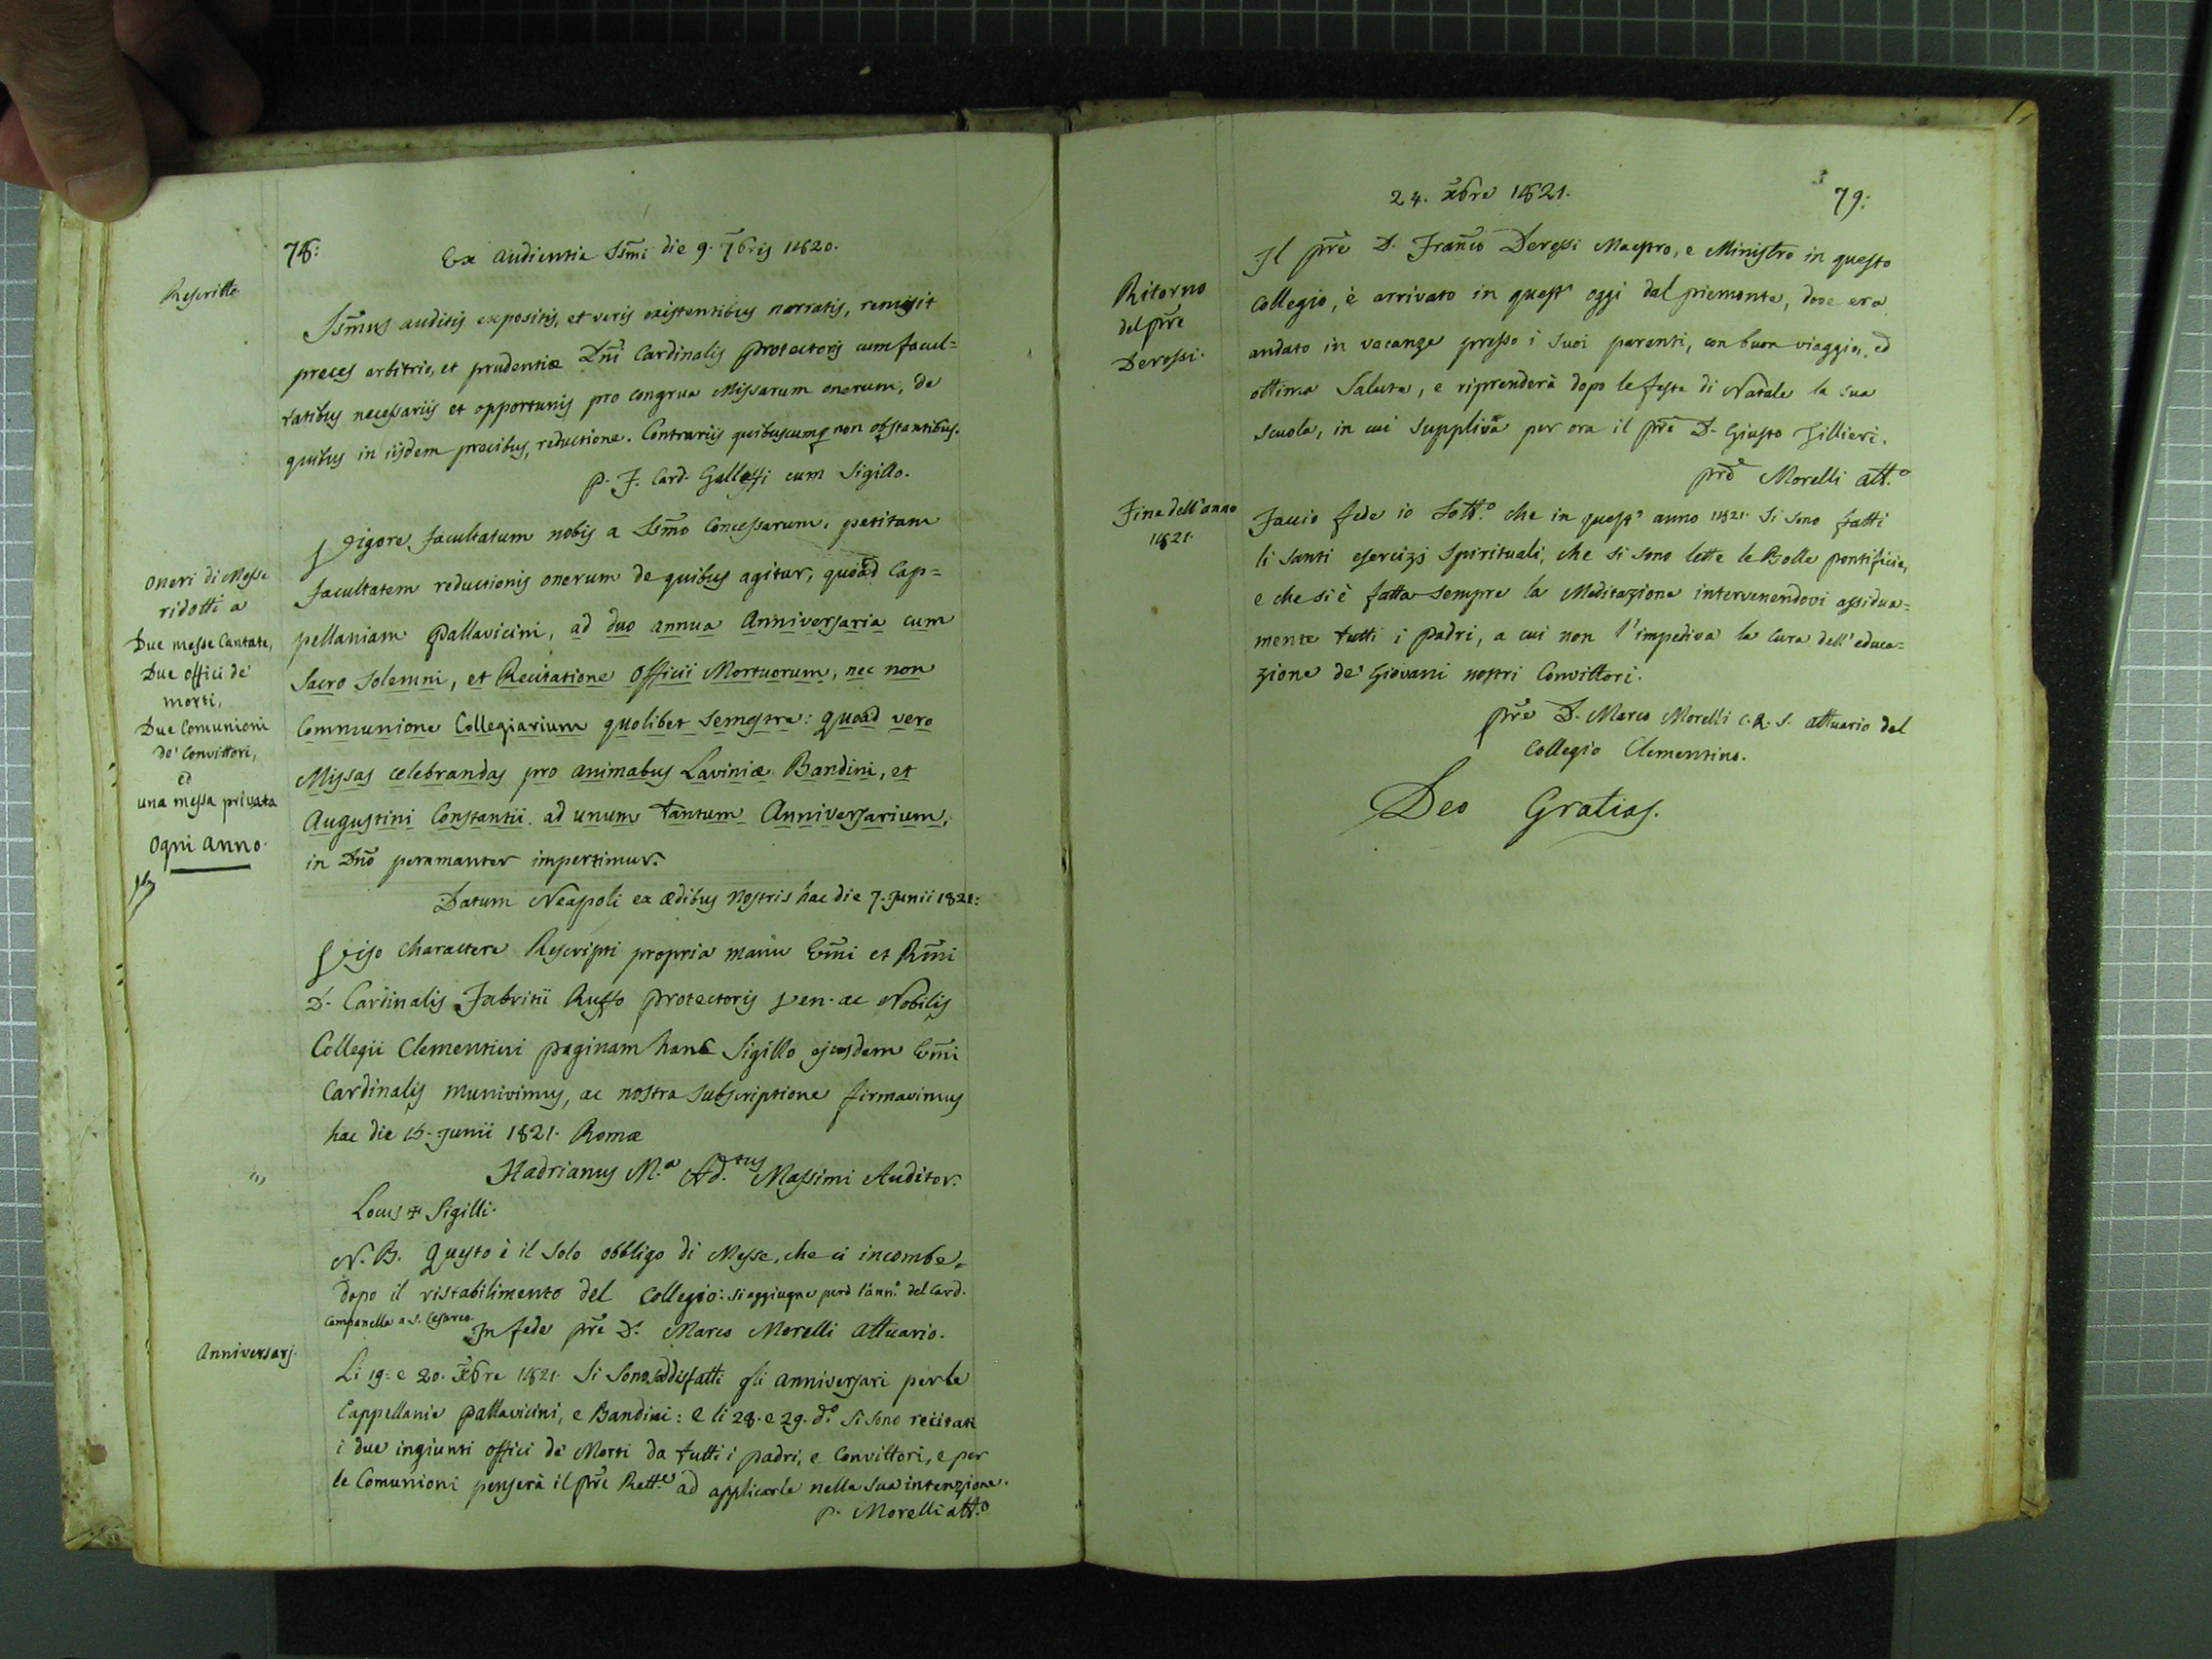 78:
Ex audientia SSm̃i die 9. 7bris 1820.
Rescritto
SSm̃us auditis expositis, et veris existentibus narratis, remisit
preces arbitrio, et prudentiæ Dñi Cardinalis Protectoris cum facul=
tatibus necessariis et opportunis pro congrua Missarum onerum, de
quibus in iisdem precibus, reductione. Contrariis quibuscumq̃ non obstantibus.
P. F. Card. Galleffi cum Sigillo.
Vigore facultatum nobis a SSm̃o Concessarum, petitam
facultatem reductionis onerum de quibus agitur, quoad Cap=
pellaniam Pallavicini, ad duo annua Anniversaria cum
Sacro solemni, et Recitatione Officii Mortuorum, nec non
Communione Collegiarium quolibet semestre: quoad vero
Missas celebrandas pro animabus Laviniæ Bandini, et
Augustini Constantii ad unum tantum Anniversarium,
in Dño peramanter impertimur.
Oneri di Messe
ridotti a
Due messe Cantate,
Due offici de'
morti,
Due Comunioni
de' Convittori,
ed
una messa privata
Ogni anno.
Datum Neapoli ex ædibus nostris hac die 7. Junii 1821:
Viso charactere Rescripti propria manu Em̃i et Rm̃i
D. Cardinalis Fabritii Ruffo Protectoris Ven. ac Nobilis
Collegii Clementini paginam hanc Sigillo ejusdem Em̃i
Cardinalis munivimus, ac nostra subscriptione firmavimus
hac die 15. Junii 1821. Romæ
Hadrianus M.a Ad.tus Massimi Auditor.
Locus ✠ Sigilli.
N. B. Questo è il solo obbligo di Messe, che ci incombe
dopo il ristabilimento del Collegio: si aggiugne però l'ann.o del Card.
Campanella a S. Cesareo.
In fede pr̃e D. Marco Morelli Attuario.
Anniversarj.
Li 19: e 20. Xbre 1821. Si sono sodisfatti gli anniversari per le
Cappellanie Pallavicini, e Bandini: e li 28. e 29. d.o si sono recitati
i due ingiunti offici de' Morti da tutti i Padri, e Convittori, e per
le Comunioni penserà il pr̃e Rett.e ad applicarle nella sua intenzione.
P. Morelli att.o
24. Xbre 1821.
79:
Ritorno
del pr̃e
Derossi.
Il pr̃e D. Franc̃o Derossi Maestro, e Ministro in questo
Collegio, è arrivato in quest' oggi dal piemonte, dove era
andato in vacanze presso i suoi parenti, con buon viaggio, ed
ottima Salute, e riprenderà dopo le feste di Natale la sua
scuola, in cui suppliva per ora il pr̃e D. Giusto Zillieri.
pr̃e Morelli att.o
Fine dell'anno
1821.
Faccio fede io Sott.o che in quest' anno 1821. Si sono fatti
li Santi esercizj Spirituali, che si sono lette le Bolle pontificie,
e che si è fatta sempre la Meditazione intervenendovi assidua=
mente tutti i Padri, a cui non l'impediva la Cura dell'educa=
zione de' Giovani nostri Convittori.
pr̃e D. Marco Morelli C. R. S. attuario del
Collegio Clementino.
Deo Gratias.